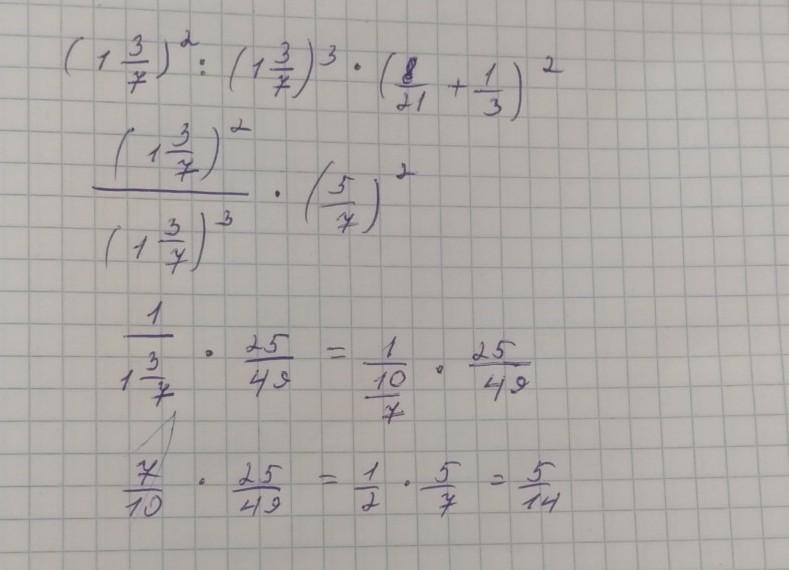 (1 3/7)² : (1 3/7)³ · (8/21 + 1/3)²
(1 3/7)²/(1 3/7)³ · (5/7)²
1/(1 3/7) · 25/49 = 1/(10/7) · 25/49
7/10 · 25/49 = 1/2 · 5/7 = 5/14